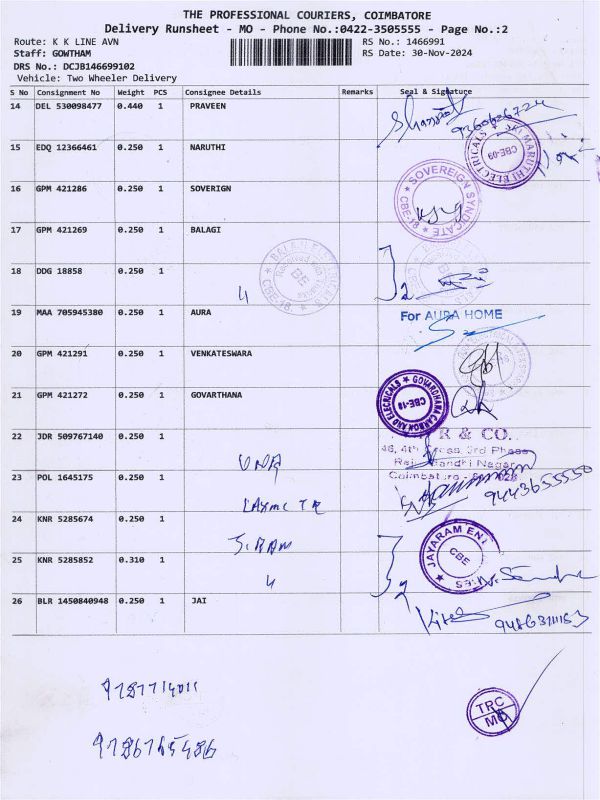 THE PROFESSIONAL COURIERS, COIMBATORE
Delivery Runsheet - MO - Phone No.:0422-3505555 - Page No.:2
Route: K K LINE AVN RS No.: 1466991
Staff: GOWTHAM RS Date: 30-Nov-2024
DRS No.: DCJB146699102
Vehicle: Two Wheeler Delivery
S No Consignment No Weight PCS Consignee Details Remarks Seal & Signature
14 DEL 530098477 0.440 1 PRAVEEN
15 EDQ 12366461 0.250 1 NARUTHI
MARUTHI ELECTRICALS CBE-09
16 GPM 421286 0.250 1 SOVERIGN
SOVEREIGN SYNDICATE CBE-18
17 GPM 421269 0.250 1 BALAGI
18 DDG 18858 0.250 1
4
CBE-18
2
19 MAA 705945380 0.250 1 AURA
For AURA HOME
20 GPM 421291 0.250 1 VENKATESWARA
21 GPM 421272 0.250 1 GOVARTHANA
GOVARDHANA CARBON AND ELECRICALS CBE-18
22 JDR 509767140 0.250 1
R & CO.
46, 4th Cross, 3rd Phase
Rajiv Gandhi Nagar
23 POL 1645175 0.250 1
9443655550
24 KNR 5285674 0.250 1
25 KNR 5285852 0.310 1
4
JAYARAM ENT CBE
2
26 BLR 1450840948 0.250 1 JAI
TRC
MO